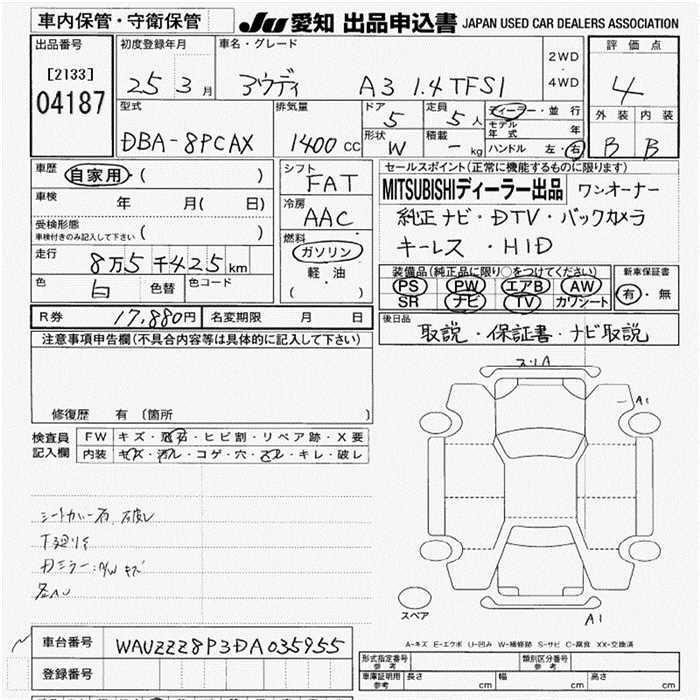 車内保管・守衛保管 JU 愛知 出品申込書 JAPAN USED CAR DEALERS ASSOCIATION
出品番号 初度登録年月 車名・グレード 評価点
[2133] 25 3月 アウディ A3 1.4TFSI 2WD・4WD 4
04187
型式 排気量 ドア 定員 ディーラー・並行 外装 内装
DBA-8PCAX 1400cc 5 5人 モデル年式 年 B B
形状 W 積載 - kg ハンドル 左・右
車歴 自家用・( ) シフト FAT セールスポイント(正常に機能するものに限ります)
車検 年 月( 日) 冷房 AAC MITSUBISHIディーラー出品 ワンオーナー
受検形態 車検付きのみ記入して下さい ( ) 純正ナビ・DTV・バックカメラ
走行 8万5千425km 燃料 ガソリン 軽油 ( ) キーレス・HID
色 白 色替 色コード 装備品(純正品に限り○をつけてください) 新車保証書
PS PW エアB AW 有・無
SR ナビ TV カワシート
R券 17,880円 名変期限 月 日 後日品
取説・保証書・ナビ取説
注意事項申告欄(不具合内容等は具体的に記入して下さい)
修復歴 有 〔箇所 〕
検査員記入欄 FW キズ・飛石・ヒビ割・リペア跡・X要
内装 キズ・汚レ・コゲ・穴・スレ・キレ・破レ
スリA
A1
シートカバー右 破レ
下廻りサ
Dミラー:
キズ
スペア
A1
A-キズ E-エクボ U-凹み W-補修跡 S-サビ C-腐食 XX-交換済
車台番号 WAUZZZ8P3DA035955
登録番号
形式指定番号 参考 類別区分番号 参考
車庫証明用 参考 長さ cm 幅 cm 高さ cm